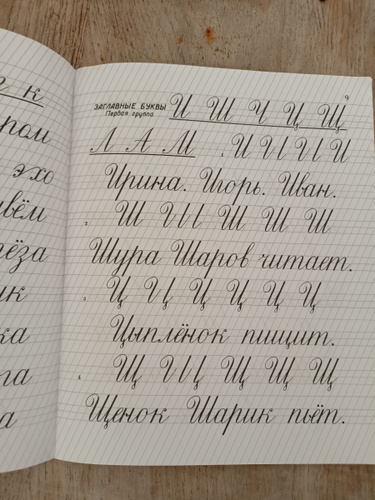 г к
ром
эхо
вём
ёза
ик
ка
га
а
9
ЗАГЛАВНЫЕ БУКВЫ
Первая группа
И Ш Ч Ц Щ
Л А М
1. И И И И
Ирина. Игорь. Иван.
2. Ш И І Ш Ш Ш
Шура Шаров читает.
3. Ц И Ц Ц Ц Ц Ц
Цыплёнок пищит.
4. Щ И Ц Щ Щ Щ
Щенок Шарик пьёт.